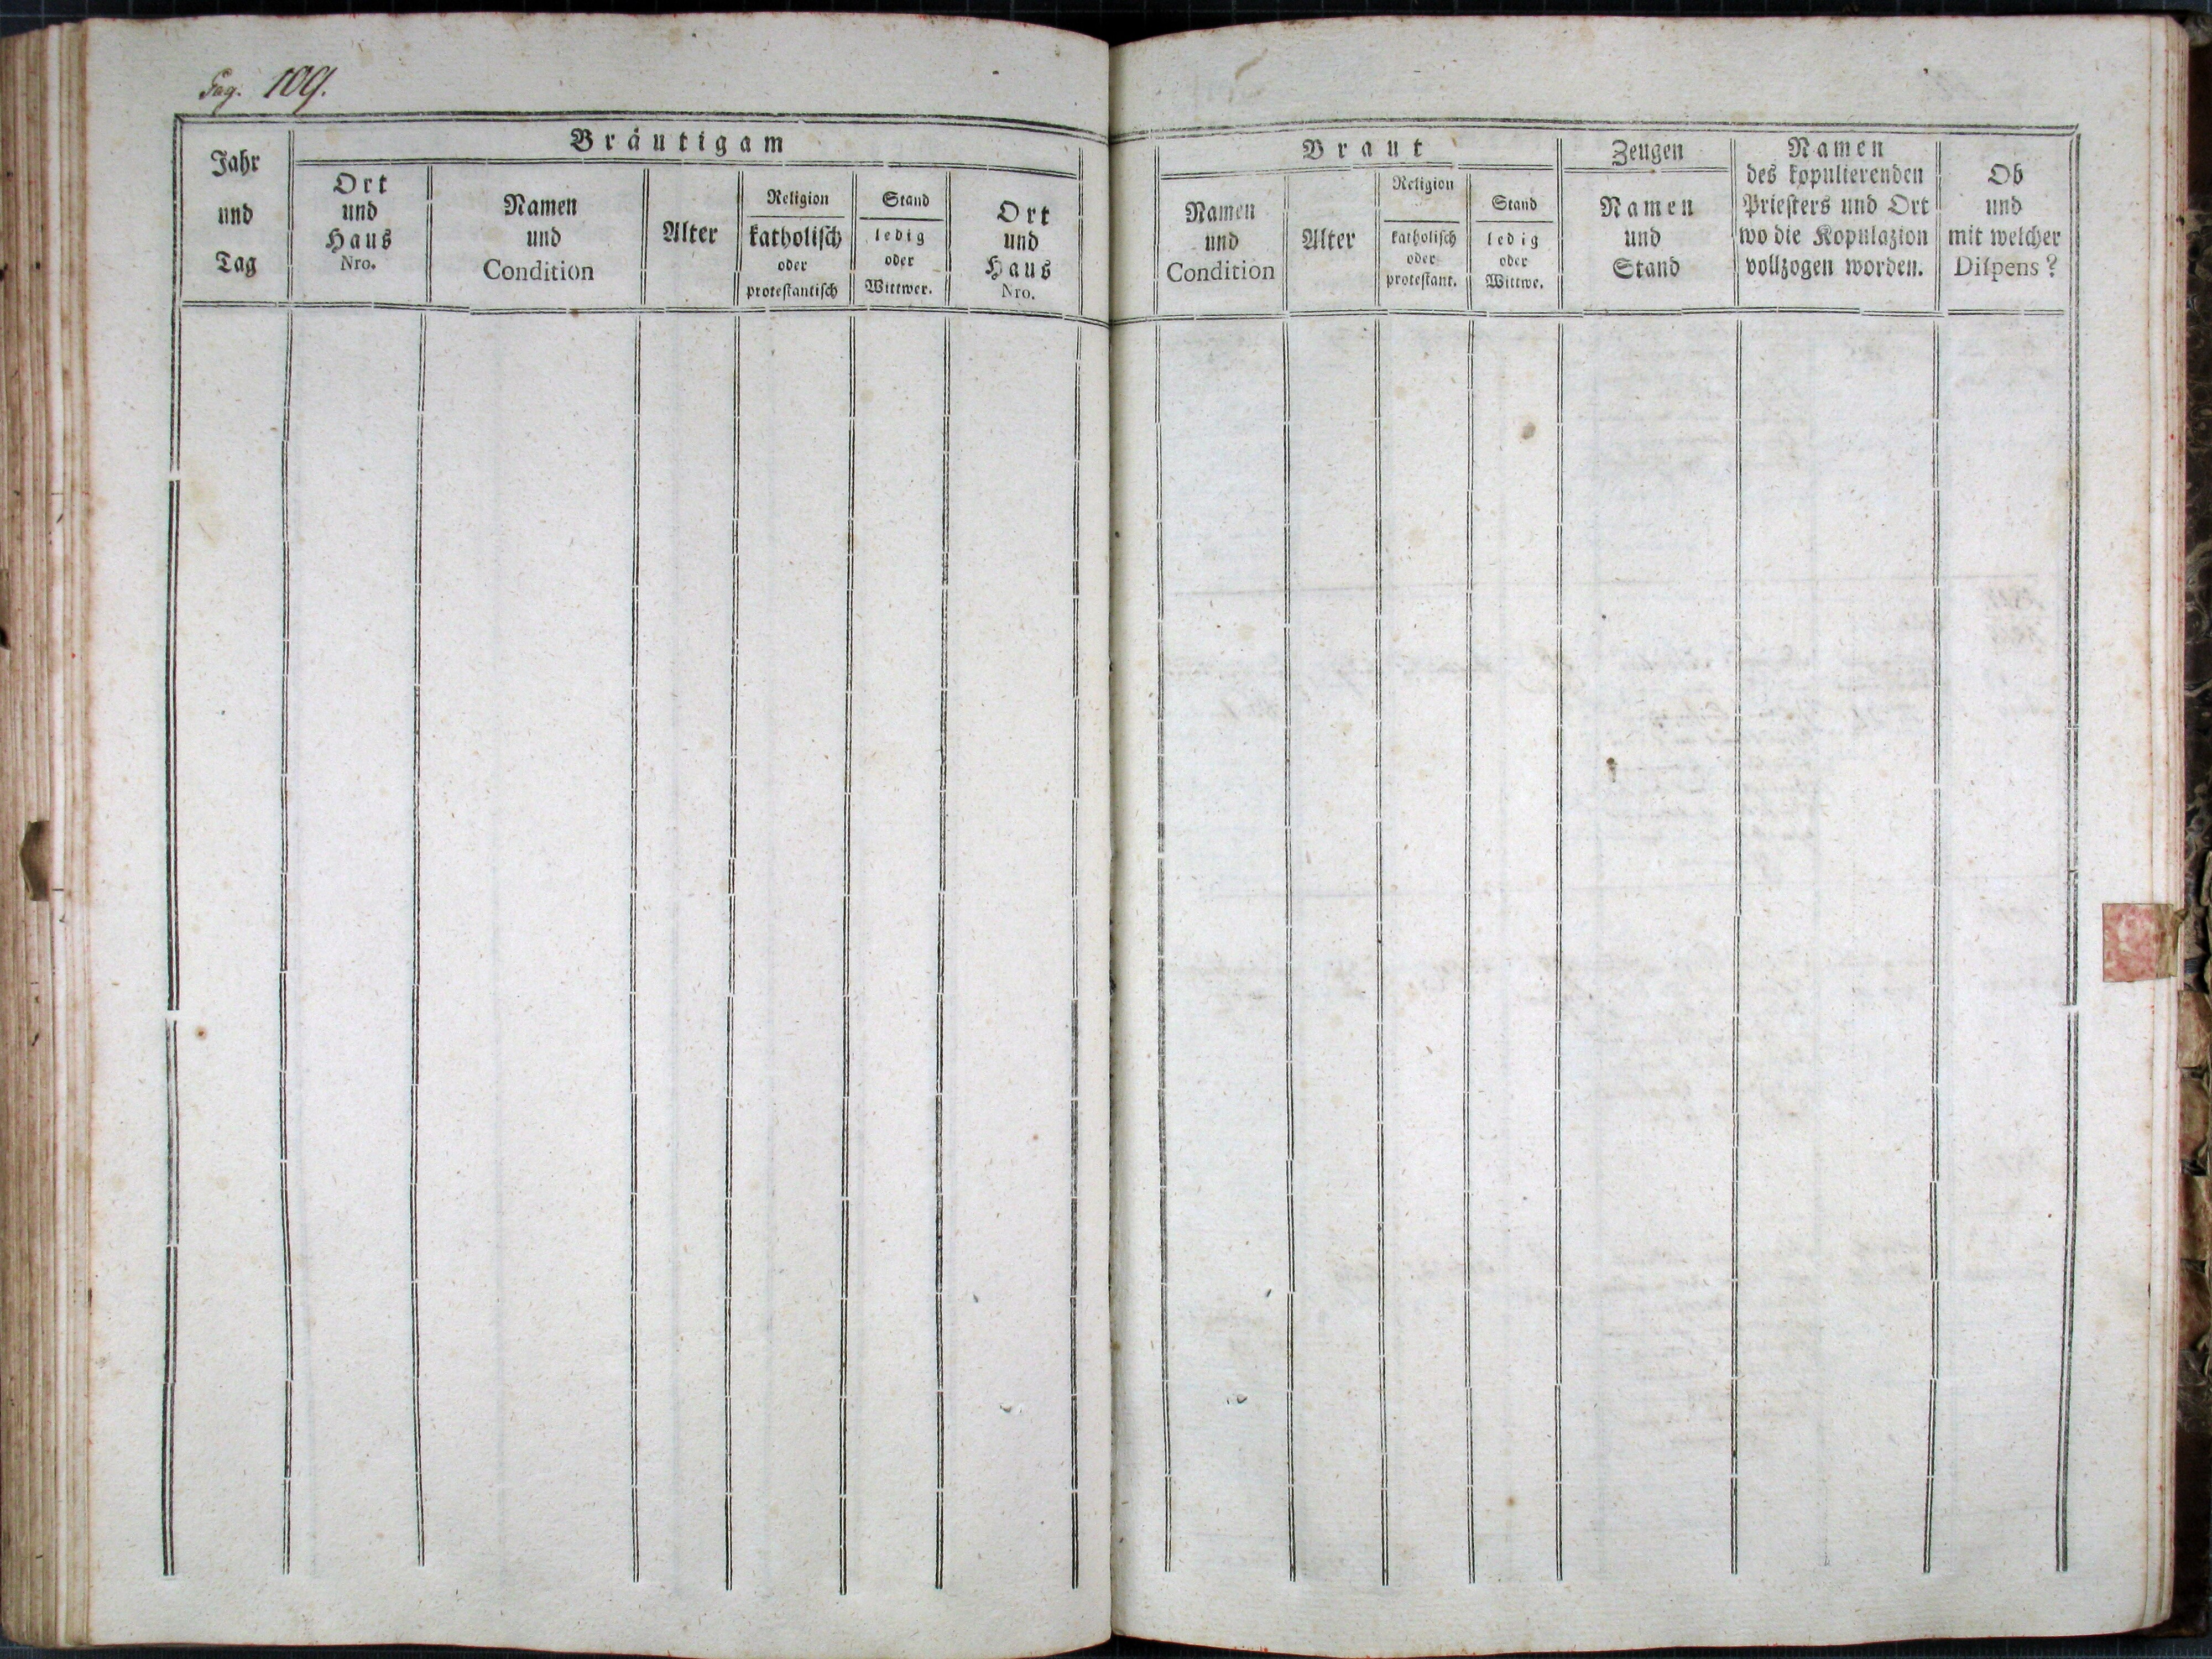 Pag. 109.
Bräutigam
Jahr
und
Tag
Ort
und
Haus
Nro.
Namen
und
Condition
Alter
Religion
katholisch
oder
protestantisch
Stand
ledig
oder
Wittwer.
Ort
und
Haus
Nro.
Braut
Namen
und
Condition
Alter
Religion
katholisch
oder
protestant.
Stand
ledig
oder
Wittwe.
Zeugen
Namen
und
Stand
Namen
des kopulierenden
Priesters und Ort
wo die Kopulazion
vollzogen worden.
Ob
und
mit welcher
Dispens?